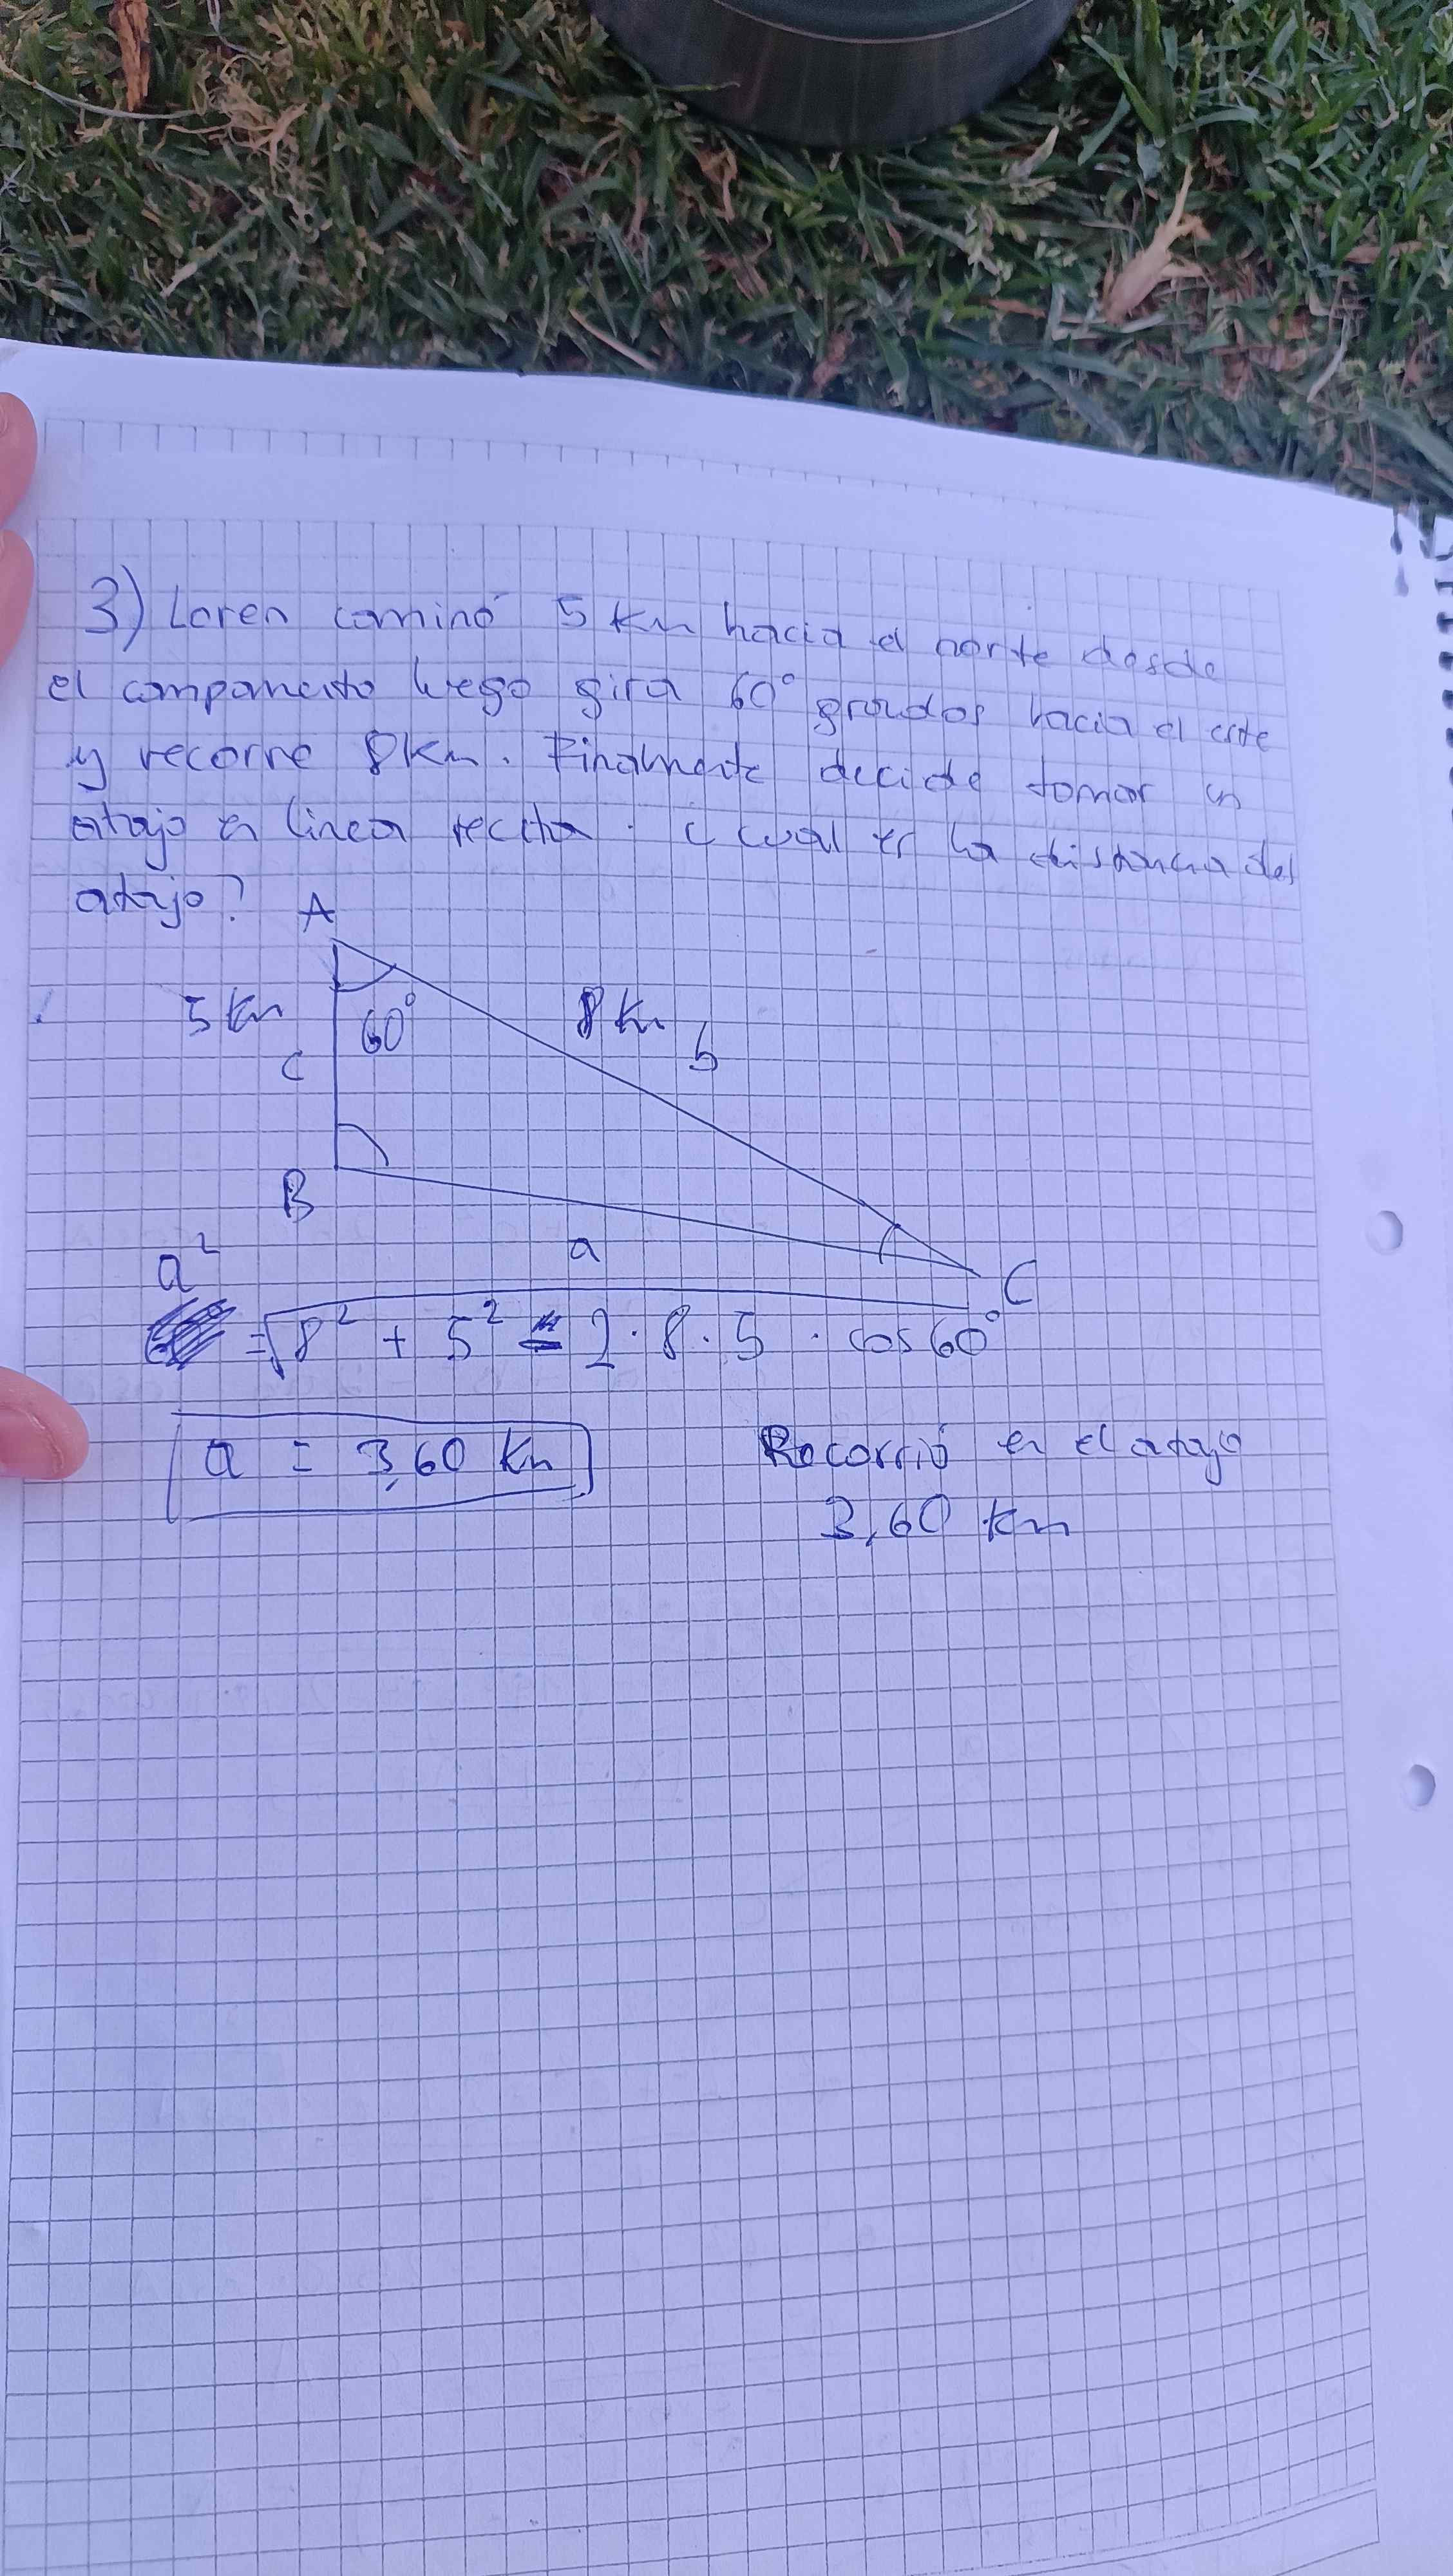 3) Loren caminó 5 Km hacia el norte desde
el campamento luego gira 60° grados hacia el este
y recorre 8Km. Finalmente decide tomar un
atajo en linea recta. ¿ cual es la distancia del
atajo?
A
5 Km
60°
8 Km
c
b
B
a
C
a²
= √8² + 5² - 2 · 8 · 5 · cos 60°
a = 3,60 Km
Recorrió en el atajo
3,60 Km